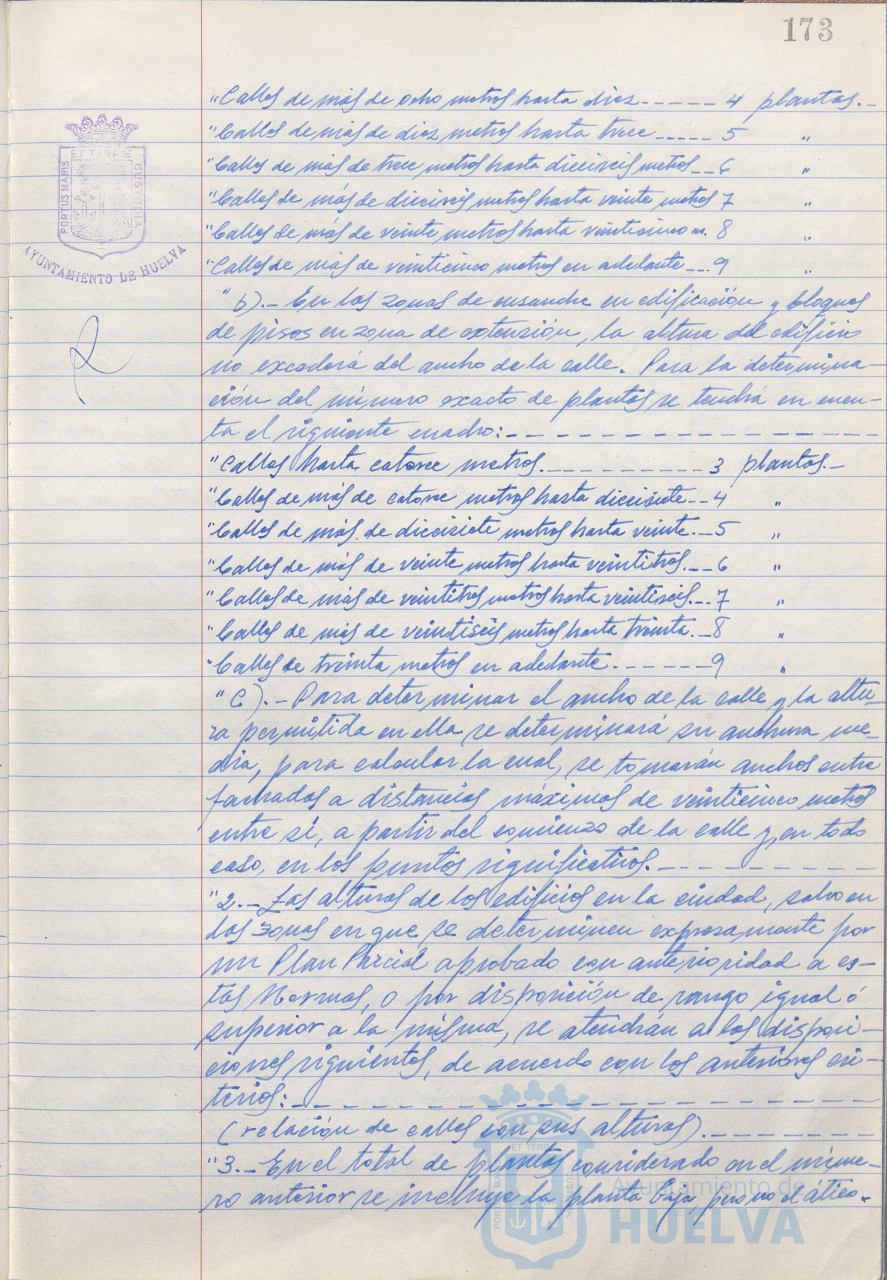 173
"Calles de más de ocho metros hasta diez.----- 4 plantas.-
"Calles de más de diez metros hasta trece ----- 5 "
"Calles de más de trece metros hasta dieciseis metros --6 "
"Calles de más de dieciseis metros hasta veinte metros 7 "
"Calles de más de veinte metros hasta veinticinco m. 8 "
"Calles de más de veinticinco metros en adelante ---9 "
"b).- En las zonas de ensanche en edificación y bloques
de pisos en zona de extensión, la altura del edificio
no excederá del ancho de la calle. Para la determina-
ción del número exacto de plantas se tendrá en cuen-
ta el siguiente cuadro:- - - - - - - - - - - - -
"Calles hasta catorce metros.--------- 3 plantas.-
"Calles de más de catorce metros hasta diecisiete--4 "
"Calles de más de diecisiete metros hasta veinte.--5 "
"Calles de más de veinte metros hasta veintitres.--6 "
"Calles de más de veintitres metros hasta veintiseis.--7 "
"Calles de más de veintiseis metros hasta treinta.--8 "
"Calles de treinta metros en adelante.------9 "
"c).- Para determinar el ancho de la calle y la altu-
ra permitida en ella se determinará su anchura me-
dia, para calcular la cual, se tomarán anchos entre
fachadas a distancias máximas de veinticinco metros
entre sí, a partir del comienzo de la calle y, en todo
caso, en los puntos significativos.- - - - - - -
"2.- Las alturas de los edificios en la ciudad, salvo en
las zonas en que se determinen expresamente por
un Plan Parcial aprobado con anterioridad a es-
tas Normas, o por disposición de rango igual ó
superior a la misma, se atendrán a las disposi-
ciones siguientes, de acuerdo con los anteriores cri-
terios:- - - - - - - - - - - - - - - -
(relación de calles con sus alturas)- - - - - -
"3.- En el total de plantas considerado en el núme-
ro anterior se incluye la planta baja, pero no el ático.
PORTUS MARIS
ET TERRE
CUSTODIA
AYUNTAMIENTO DE HUELVA
Ayuntamiento de
HUELVA